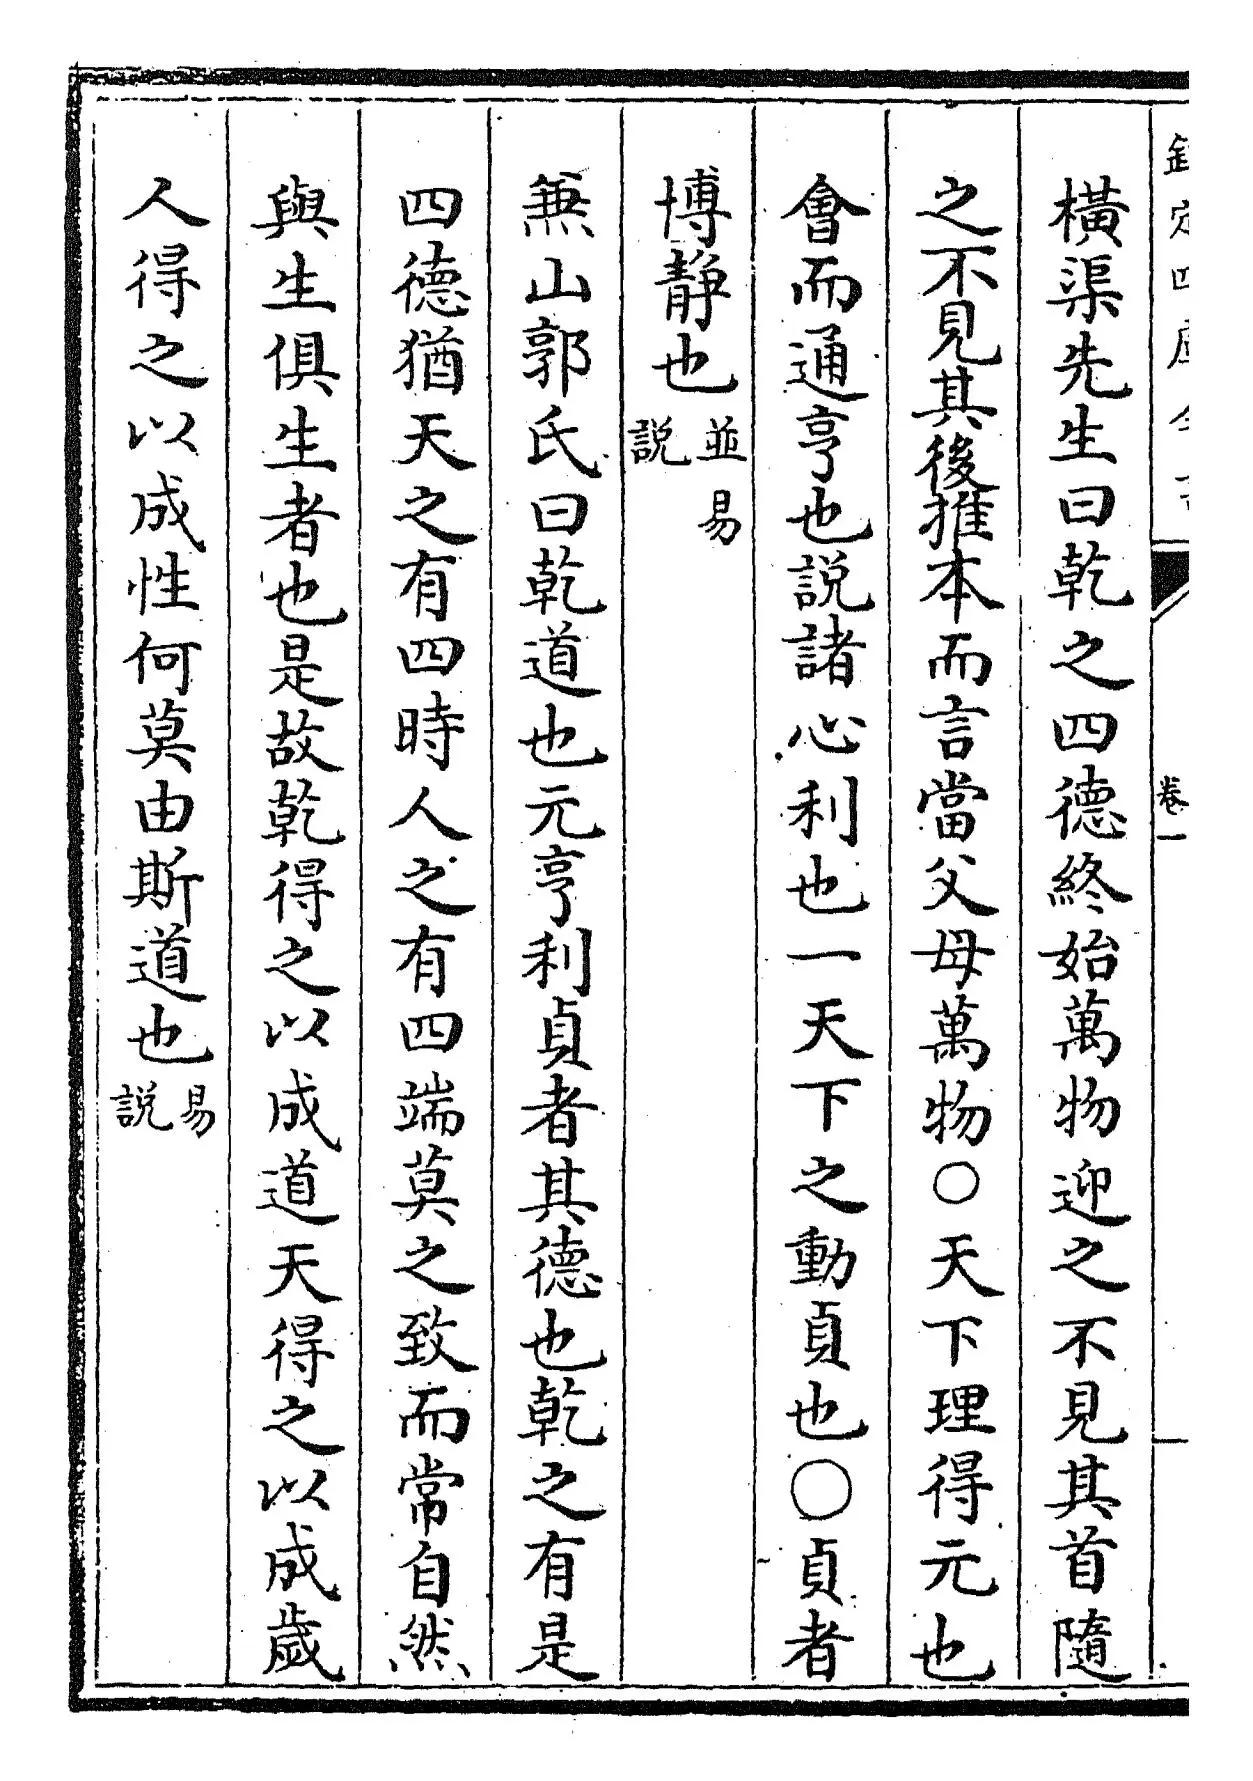 欽定四庫全書
卷一
橫渠先生曰乾之四德終始萬物迎之不見其首隨
之不見其後推本而言當父母萬物○天下理得元也
會而通亨也說諸心利也一天下之動貞也○貞者
博静也並易說
兼山郭氏曰乾道也元亨利貞者其德也乾之有是
四德猶天之有四時人之有四端莫之致而常自然
與生俱生者也是故乾得之以成道天得之以成歲
人得之以成性何莫由斯道也易說